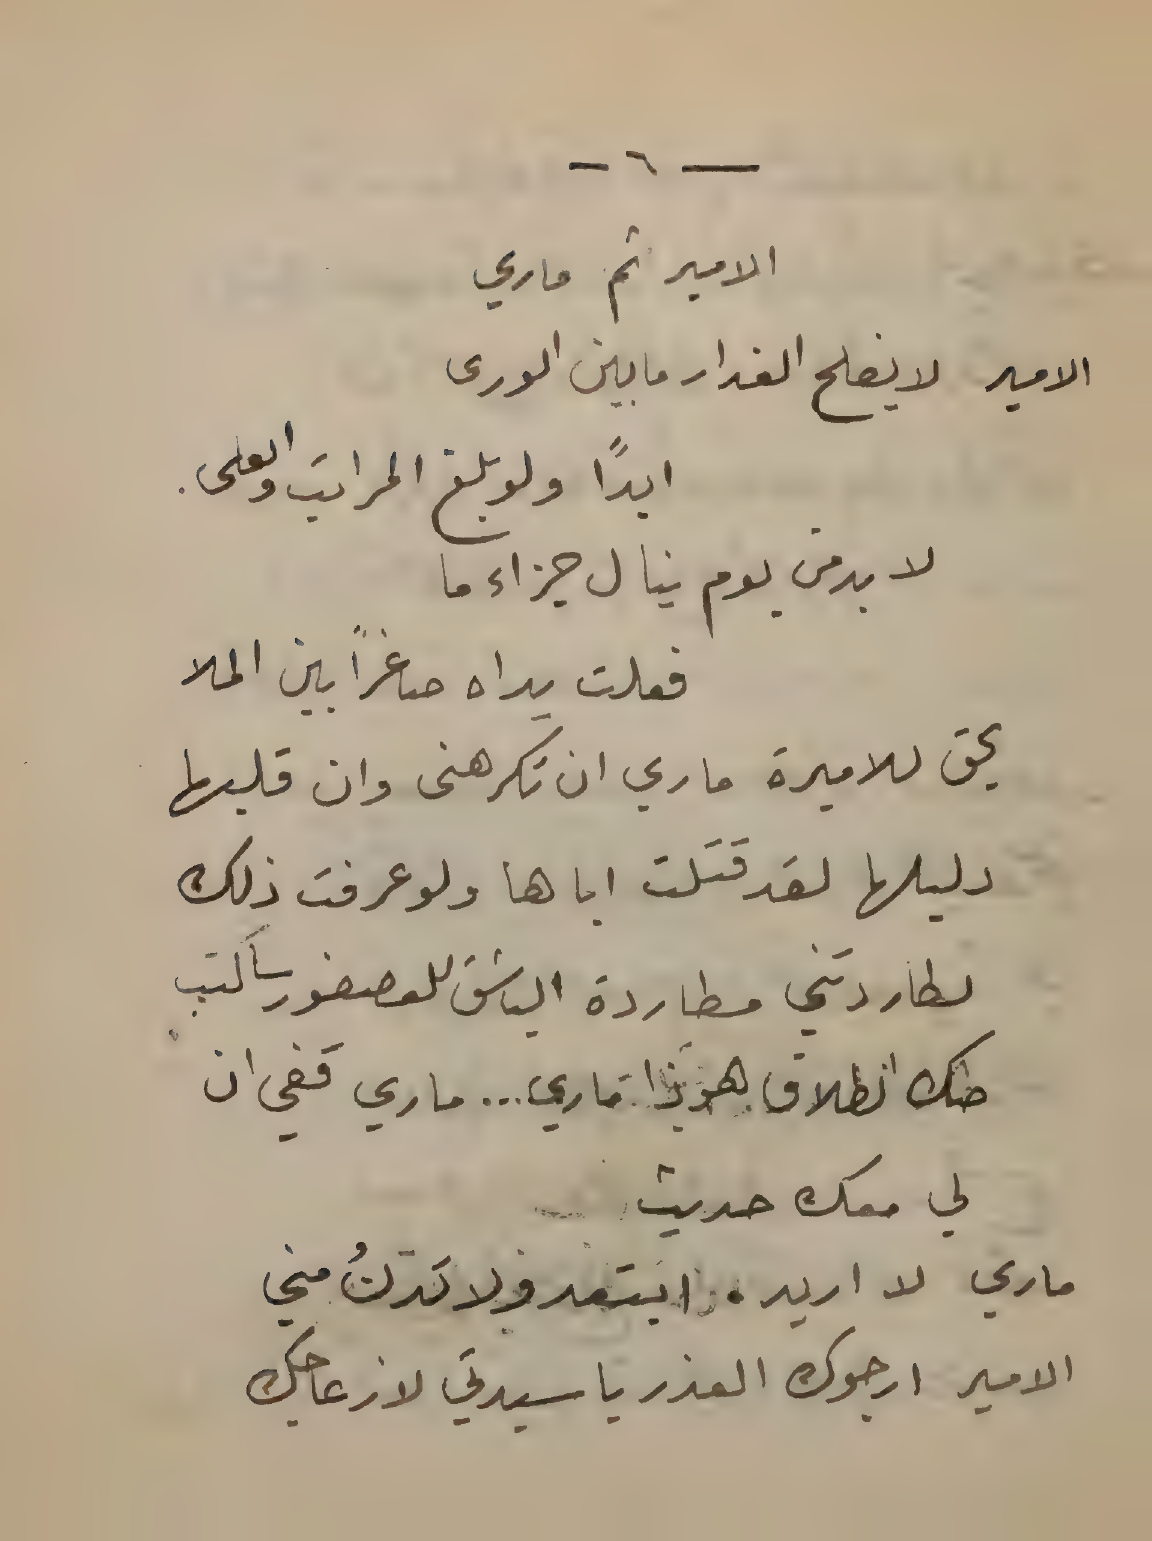 — ٦ —
الامير ثم ماري
الامير لا يفلح الغدار ما بين الورى
ابدًا ولو بلغ المراتب والعلى .
لا بد من يوم ينال جزاء ما
فعلت يداه صاغرًا بين الملا
يحق للاميرة ماري ان تكرهنى وان قلبها
دليلها لقد قتلت اباها ولو عرفت ذلك
لطاردتني مطاردة الباشق للعصفور ساكتب
صك انطلاق هوذا ماري... ماري قفي ان
لي معك حديث
ماري لا اريد . ابتعد ولا تدنُ مني
الامير ارجوك العذر يا سيدتي لازعاجك